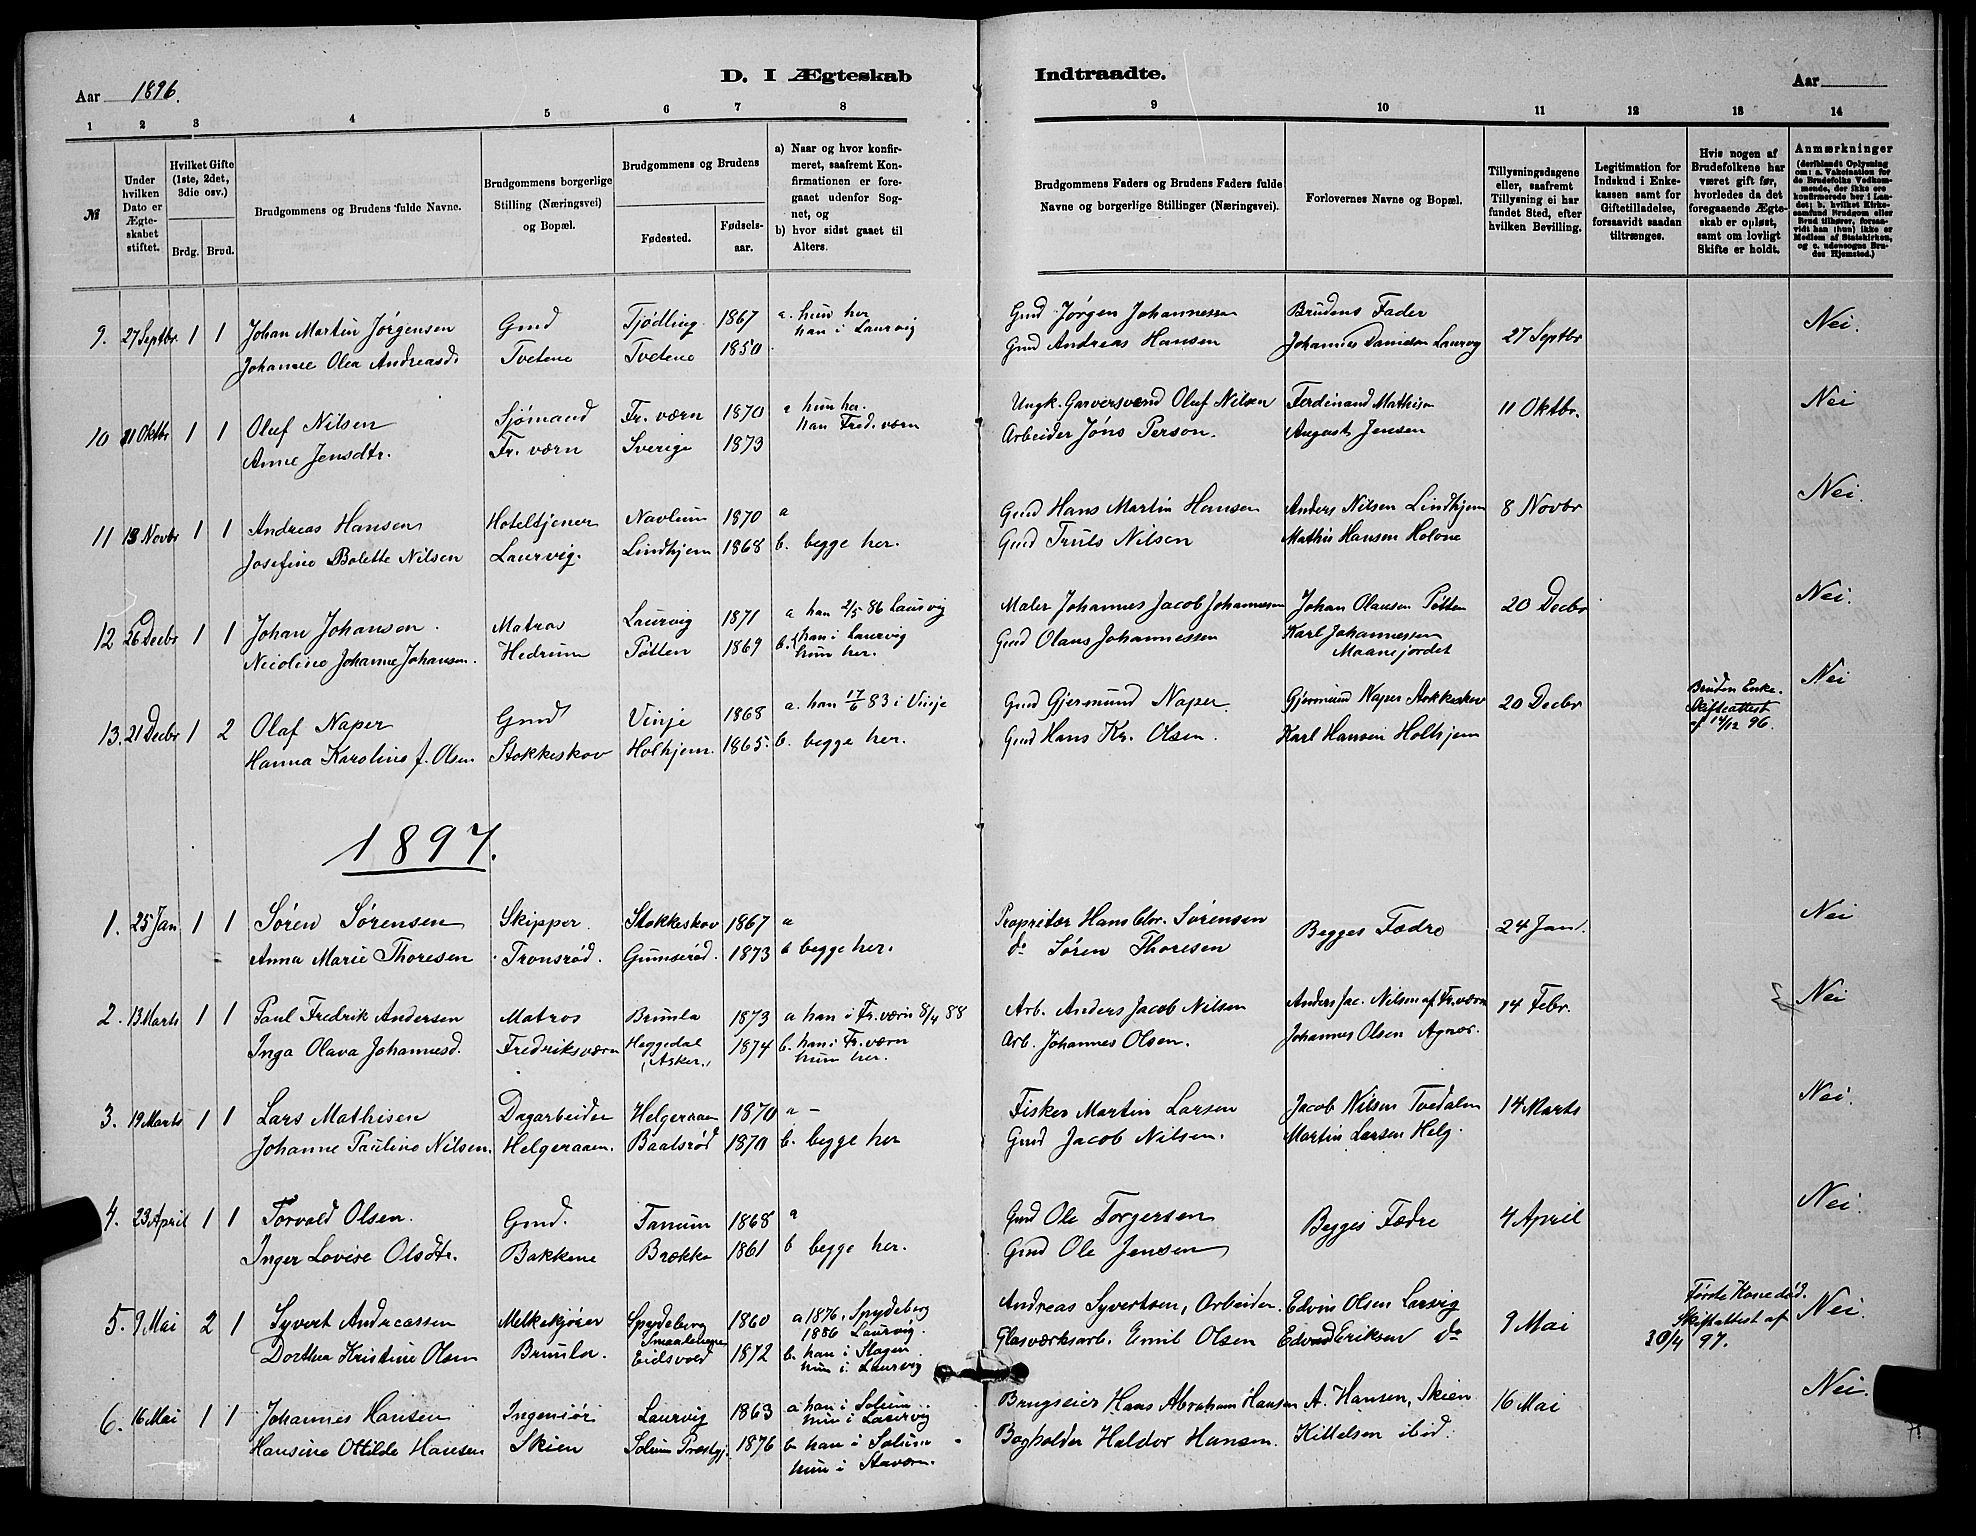 D. I Ægteskab
Indtraadte.
Aar 1896.
Aar
1 2 3 4 5 6 7 8
9 10 11 12 13 14
№
Under hvilken Dato er Ægteskabet stiftet.
Hvilket Gifte (1ste, 2det, 3die osv.)
Brdg. Brud.
Brudgommens og Brudens fulde Navne.
Brudgommens borgerlige Stilling (Næringsvei) og Bopæl.
Brudgommens og Brudens
Fødested.
Fødselsaar.
a) Naar og hvor konfirmeret, saafremt Konfirmationen er foregaaet udenfor Sognet, og
b) hvor sidst gaaet til Alters.
Brudgommens Faders og Brudens Faders fulde Navne og borgerlige Stillinger (Næringsvei).
Forlovernes Navne og Bopæl.
Tillysningsdagene eller, saafremt Tillysning ei har fundet Sted, efter hvilken Bevilling.
Legitimation for Indskud i Enkekassen samt for Giftetilladelse, forsaavidt saadan tiltrænges.
Hvis nogen af Brudefolkene har været gift før, hvorledes da det foregaaende Ægteskab er opløst, samt om lovligt Skifte er holdt.
Anmærkninger
9. 27 Septbr. 1 1 Johan Martin Jørgensen Gmd Tjødling 1867 a. hun her Gmd Jørgen Johannessen Brudens Fader 27 Septbr Nei.
Johanne Olea Andreasd. Tvetene Tvetene 1850 han i Laurvig Gmd Andreas Hansen Johannes Danielsen Laurvig
10 11 Oktbr 1 1 Oluf Nilsen Sjømand Fr. værn 1870 a hun her. Ungk. Garversvend Oluf Nilsen Ferdinand Mathisen 11 Oktbr. Nei
Anne Jensdtr. Fr. værn Sverige 1873 han Fred.værn Arbeider Jöns Person. August Jensen
11 13 Novbr 1 1 Andreas Hansen Hoteltjener Navlum 1870 a Gmd Hans Martin Hansen Anders Nilsen Lindhjem 8 Novbr Nei.
Josefine Bolette Nilsen Laurvig. Lindhjem 1868 b. begge her. Gmd Truls Nilsen Mathis Hansen Holone
12 26 Decbr 1 1 Johan Johansen. Matros Laurvig 1871 a han 2/5 86 Laurvig Maler Johannes Jacob Johannessen Johan Olausen Pøtten 20 Decbr Nei.
Nicoline Johanne Johansen. Hedrum Pøtten 1869 b. han i Laurvig hun her. Gmd Olaus Johannessen Karl Johannessen Maanejordet
13. 21 Decbr 1 2 Olaf Naper Gmd Vinje 1868 a. han 17/6 83 i Vinje Gmd Gjermund Naper Gjermund Naper Stokkeskov 20 Decbr Bruden Enke. Skifteattest af 14/12 96. Nei
Hanna Karoline f. Olsen Stokkeskov Holhjem 1865. b. begge her. Gmd Hans Kr. Olsen. Karl Hansen Holhjem
1897.
1. 25 Jan 1 1 Søren Sørensen Skipper. Stokkeskov 1867 a Proprietær Hans Chr. Sørensen Begges Fædre 24 Jan. Nei
Anna Marie Thoresen Tronsrød. Gumserød. 1873 b begge her. do Søren Thoresen
2. 13 Marts 1 1 Paul Fredrik Andersen Matros Brunla 1873 a han i Fr.værn 8/4 88 Arb. Anders Jacob Nilsen Anders Jac. Nilsen af Fr.værn 14 Febr. Nei
Inga Olava Johannesd. Fredriksværn Heggedal (Asker.) 1874 b. han i Fr.værn hun her. Arb. Johannes Olsen. Johannes Olsen Agnæs.
3. 19 Marts 1 1 Lars Mathisen Dagarbeider Helgeraaen 1870 a – Fisker Martin Larsen Jacob Nilsen Tvedalen 14 Marts Nei.
Johanne Pauline Nilsen. Helgeraaen. Baalsrød 1870 b. begge her Gmd Jacob Nilsen. Martin Larsen Helg.
4. 23 April 1 1 Torvald Olsen. Gmd. Tanum 1868 a Gmd Ole Torgersen Begges Fædre 4 April Nei.
Inger Lovise Olsdtr. Bakkene Brække 1861 b begge her. Gmd Ole Jensen
5. 9 Mai 2 1 Syvert Andreassen Melkekjører Spydeberg Smaalenene 1860 a 1876. Spydeberg 1886 Laurvig. Andreas Syvertsen, Arbeider. Edvin Olsen Larvig 9 Mai Første Kone død. Skifteattest af 30/4 97. Nei
Dorthea Kristine Olsen Brunla. Eidsvold 1872 b. han i Slagen hun i Laurvig Glasværksarb. Emil Olsen Edvard Eriksen do
6. 16 Mai 1 1 Johannes Hansen Ingeniør Laurvig 1863 a han i Solum. hun i Laurvig Brugseier Hans Abraham Hansen A. Hansen, Skien 16 Mai Nei.
Hansine Ottilde Hansen Skien Solum Præstgj. 1876 b han i Solum hun i Stavern. Bogholder Haldor Hansen. Kittelsen ibid.